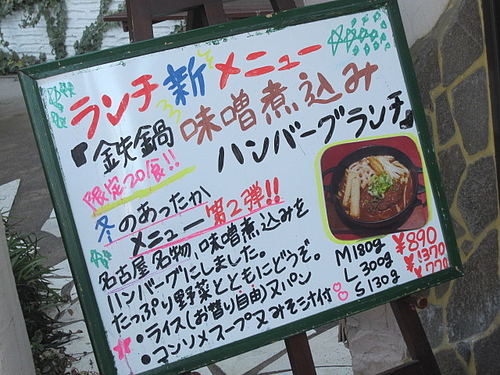 ランチ新メニュー
『鉄鍋 味噌煮込み
ハンバーグランチ』
限定20食!!
冬のあったか
メニュー第2弾!!
名古屋名物、味噌煮込みを
ハンバーグにしました。
たっぷり野菜とともにどうぞ。
・ライス(お替り自由)又パン
・コンソメスープ又みそ汁付
M180g ¥890
L300g ¥1370
S130g ¥770